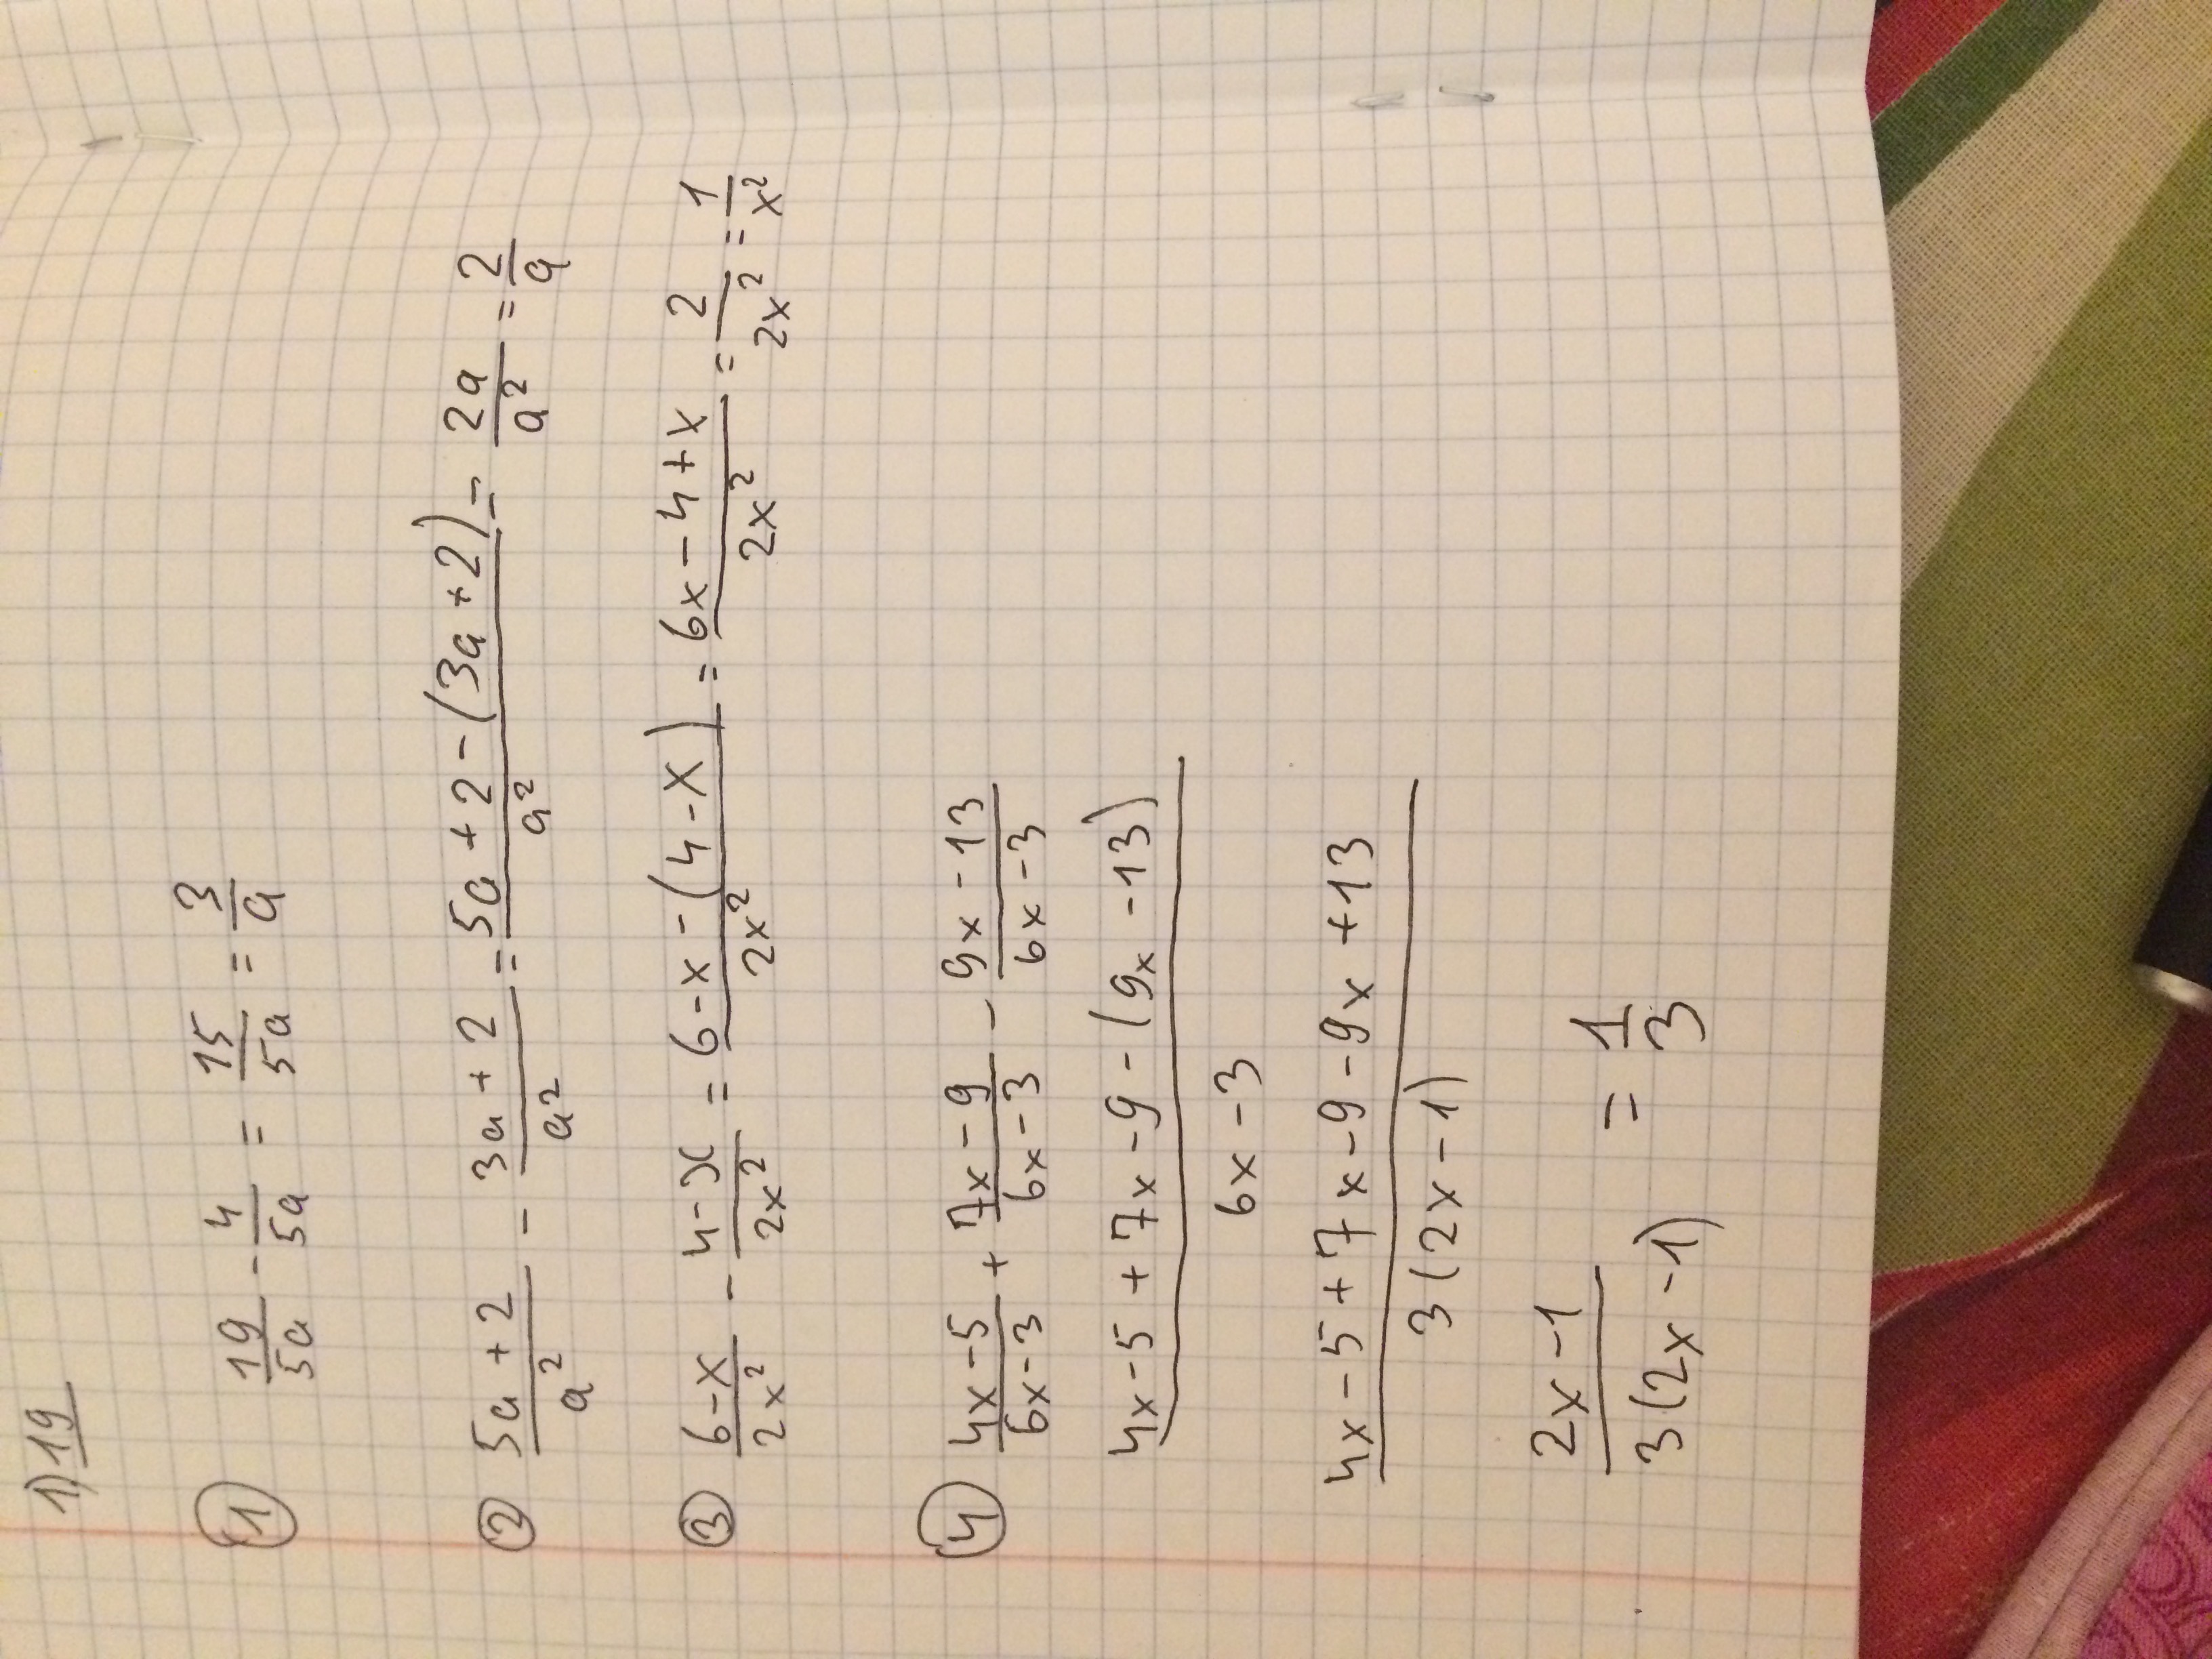 1) 19
① 19/5a - 4/5a = 15/5a = 3/a
② (5a+2)/a² - (3a+2)/a² = (5a+2-(3a+2))/a² - 2a/a² = 2/a
③ (6-x)/2x² - (4-x)/2x² = (6-x-(4-x))/2x² = (6x-4+x)/2x² = 2/2x² = 1/x²
④ (4x-5)/(6x-3) + (7x-9)/(6x-3) - (9x-13)/(6x-3)
4x-5+7x-9-(9x-13)
6x-3
4x-5+7x-9-9x+13
3(2x-1)
(2x-1)/3(2x-1) = 1/3